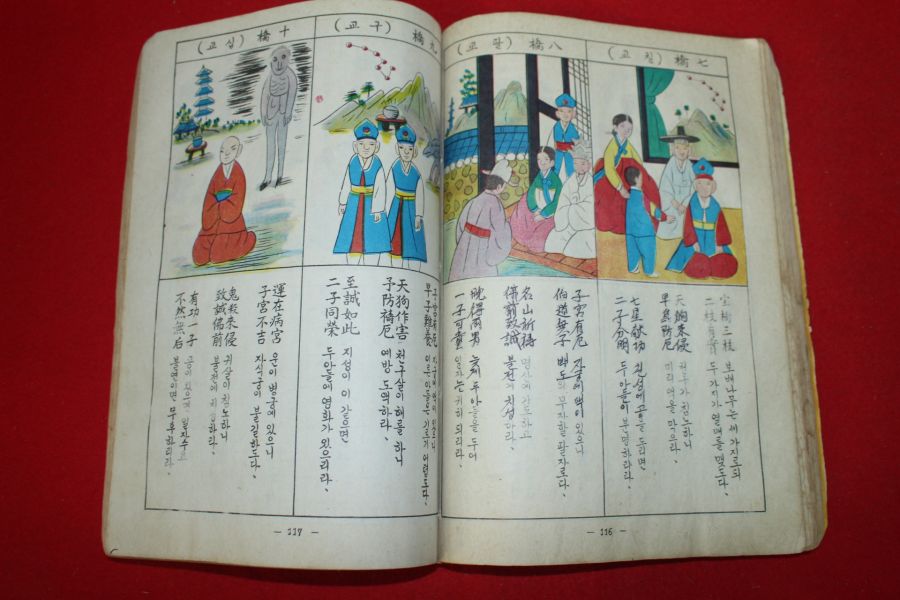 七橋 (교칠)
宝樹三枝 보배나무는 세가지로되
二枝有實 두가지가 열매를 맺도다、
天狗來侵 천구가 침노하니
早爲防厄 미리 액을 막으라、
七星献功 칠성에 공을 드리면
二子分明 두아들이 분명하리라、
八橋 (교팔)
子宮有厄 자궁에 액이 있으니
伯道無子 백도의 무자할 팔자로다、
名山祈禱 명산에 기도하고
佛前致誠 불전에 치성하라、
晩得両男 늦게 두아들을 두어
一子可貴 일자는 귀히 되리라、
九橋 (교구)
早子難養 이른아들은 기르기 어렵도다、
天狗作害 천구살이 해를 하니
予防禱厄 예방 도액하라、
至誠如此 지성이 이 같으면
二子同榮 두아들에 영화가 있으리라、
十橋 (교십)
運在病宮 운이 병궁에 있으니
子宮不吉 자식궁이 불길하도다、
鬼殺來侵 귀살이 침노하니
致誠佛前 불전에 치성하라、
有功一子 공이 있으면 일자수요
不然無后 불연이면 무후하리라、
- 116 -
- 117 -